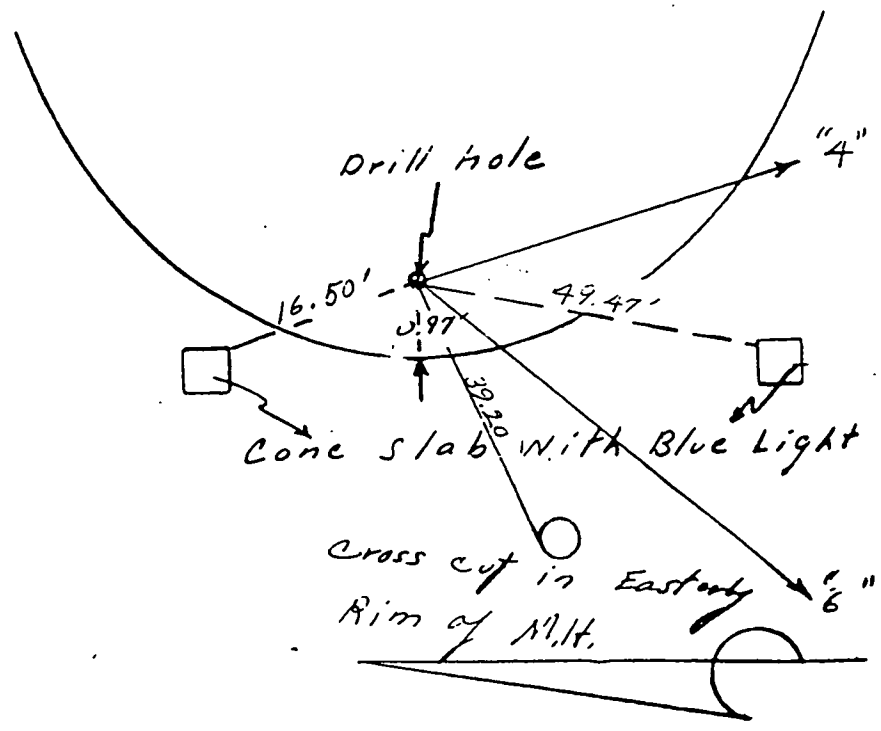 "4"
Drill hole
16.50'
49.47'
0.97'
39.20
Conc slab With Blue Light
Cross cut in Easterly
Rim of M.H.
"6"